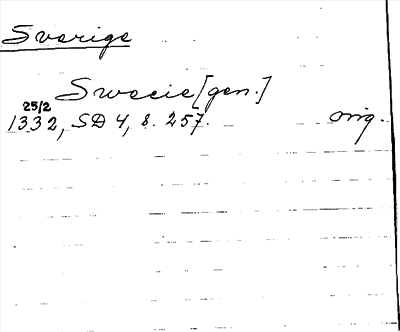 Sverige
Swecie [gen.]
25/2
1332, SD 4, s. 257. orig.